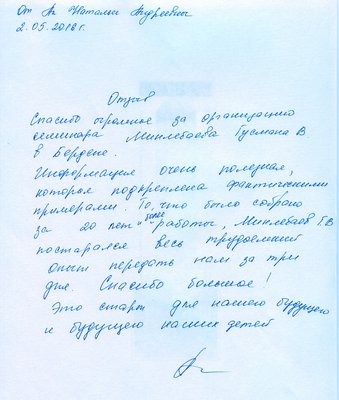 От Ак Натальи Андреевны
2.05.2016 г.
Отзыв
Спасибо огромное за организацию
семинара Минлебаева Гусмана В
в Бердске.
Информация очень полезная,
которая подкреплена фактическими
примерами. То, что было собрано
за 20 лет более работы, Минлебаев Г.В
постарался весь трудоемкий
опыт передать нам за три
дня. Спасибо большое!
Это старт для нашего будущего
и будущего наших детей